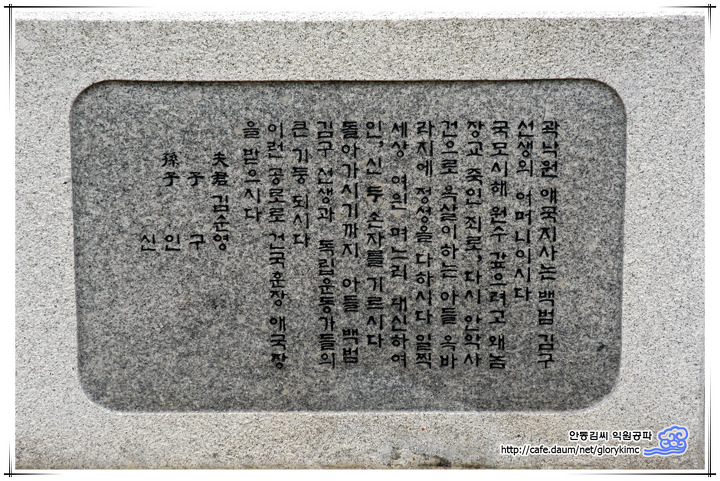 곽낙원 애국지사는 백범 김구
선생의 어머니이시다
국모시해 원수 갚으려고 왜놈
장교 죽인 죄로, 다시 안악사
건으로 옥살이하는 아들 옥바
라지에 정성을 다하시다 일찍
세상 여읜 며느리 대신하여
인, 신 두 손자를 기르시다
돌아가시기까지 아들 백범
김구 선생과 독립운동가들의
큰 기둥 되시다
이런 공로로 건국훈장 애국장
을 받으시다
夫君 김순영
子 구
孫子 인
신
안동김씨 익원공파
http://cafe.daum/net/glorykimc